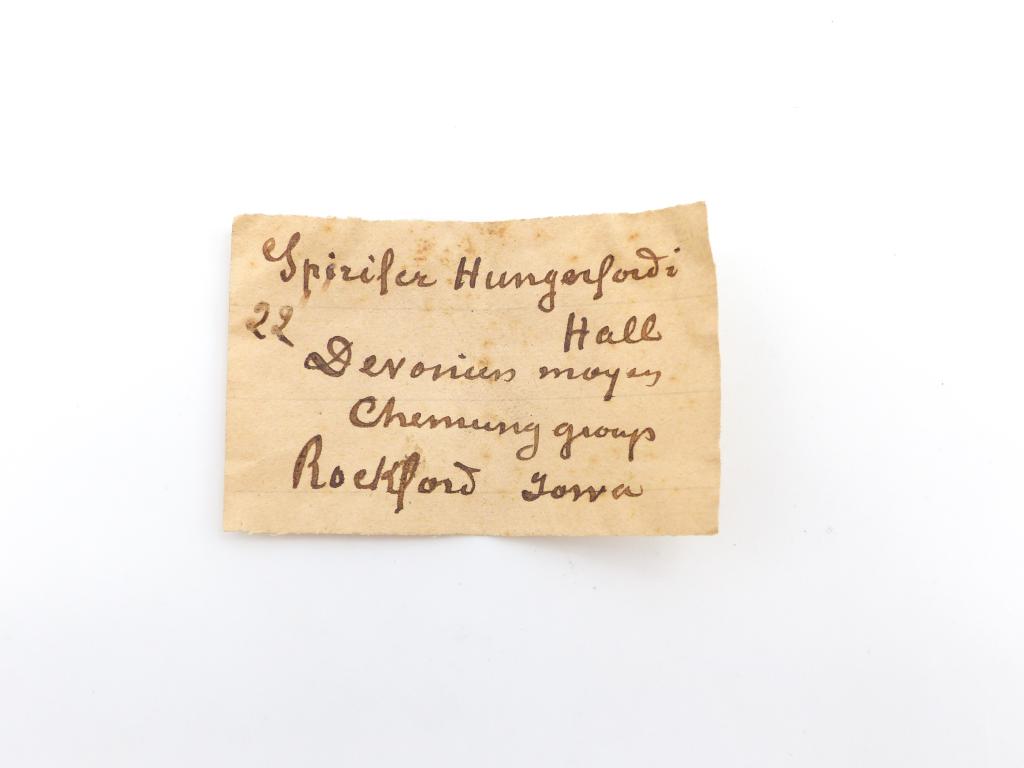 Spirifer Hungerfordi
Hall
22
Devonien moyen
Chemung group
Rockford Iowa